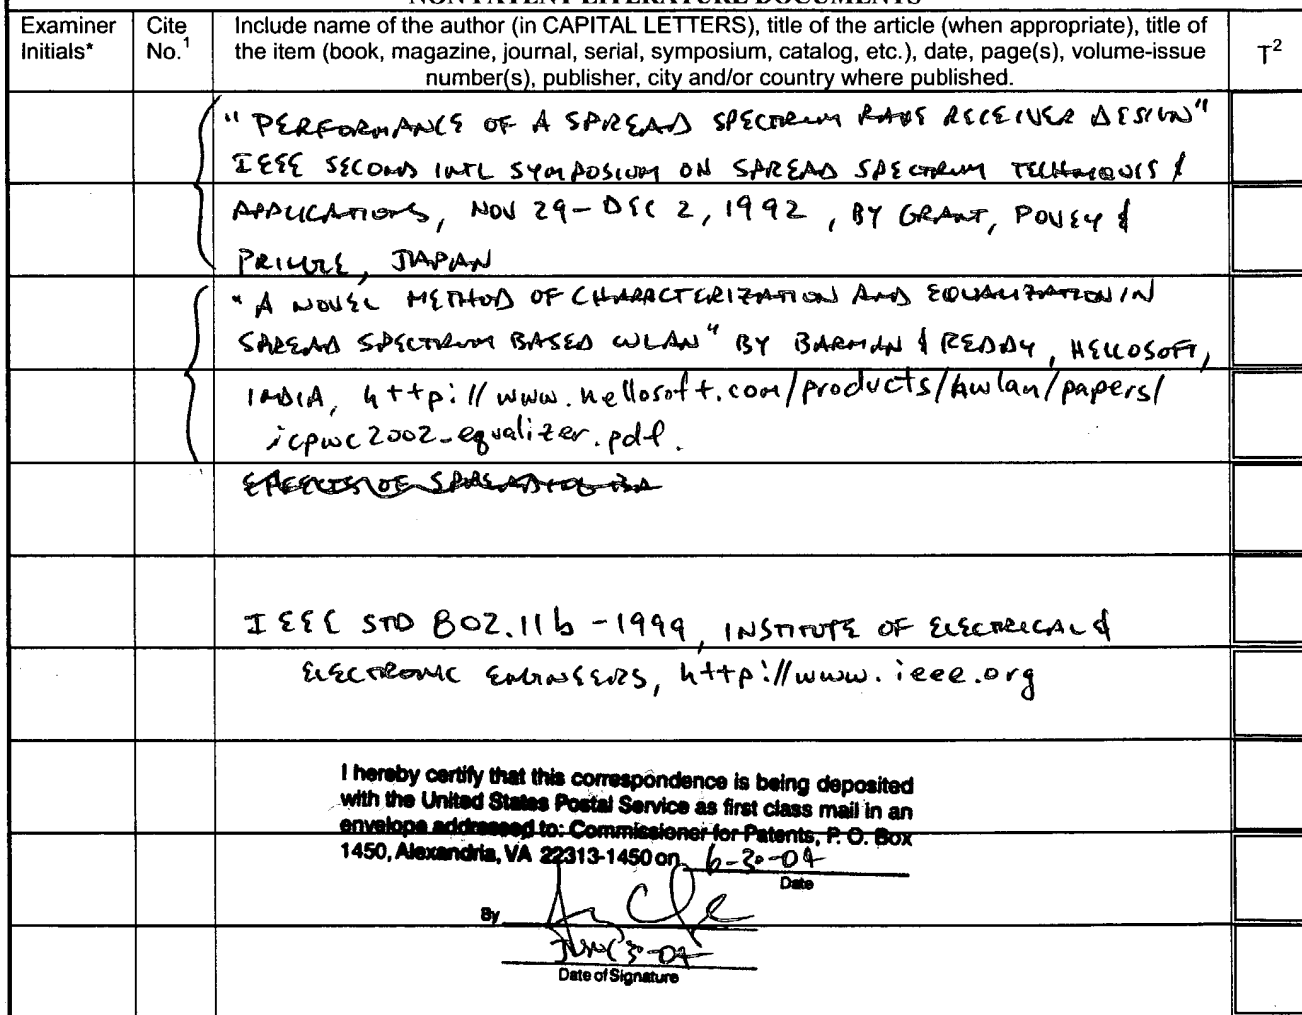 NON PATENT LITERATURE DOCUMENTS
Examiner Initials*
Cite No.1
Include name of the author (in CAPITAL LETTERS), title of the article (when appropriate), title of
the item (book, magazine, journal, serial, symposium, catalog, etc.), date, page(s), volume-issue
number(s), publisher, city and/or country where published.
T2
"PERFORMANCE OF A SPREAD SPECTRUM RAKE RECEIVER DESIGN"
IEEE SECOND INTL SYMPOSIUM ON SPREAD SPECTRUM TECHNIQUES &
APPLICATIONS, NOV 29-DEC 2, 1992, BY GRANT, POVEY &
JAPAN
"A NOVEL METHOD OF CHARACTERIZATION AND EQUALIZATION IN
SPREAD SPECTRUM BASED WLAN" BY BARMAN & REDDY, HELLOSOFT,
INDIA, http://www.hellosoft.com/products/hwlan/papers/
icpwc2002-equalizer.pdf.
IEEE STD 802.11b-1999, INSTITUTE OF ELECTRICAL &
ELECTRONIC ENGINEERS, http://www.ieee.org
I hereby certify that this correspondence is being deposited
with the United States Postal Service as first class mail in an
envelope addressed to: Commissioner for Patents, P. O. Box
1450, Alexandria, VA 22313-1450 on 6-30-04
Date
By
Date of Signature